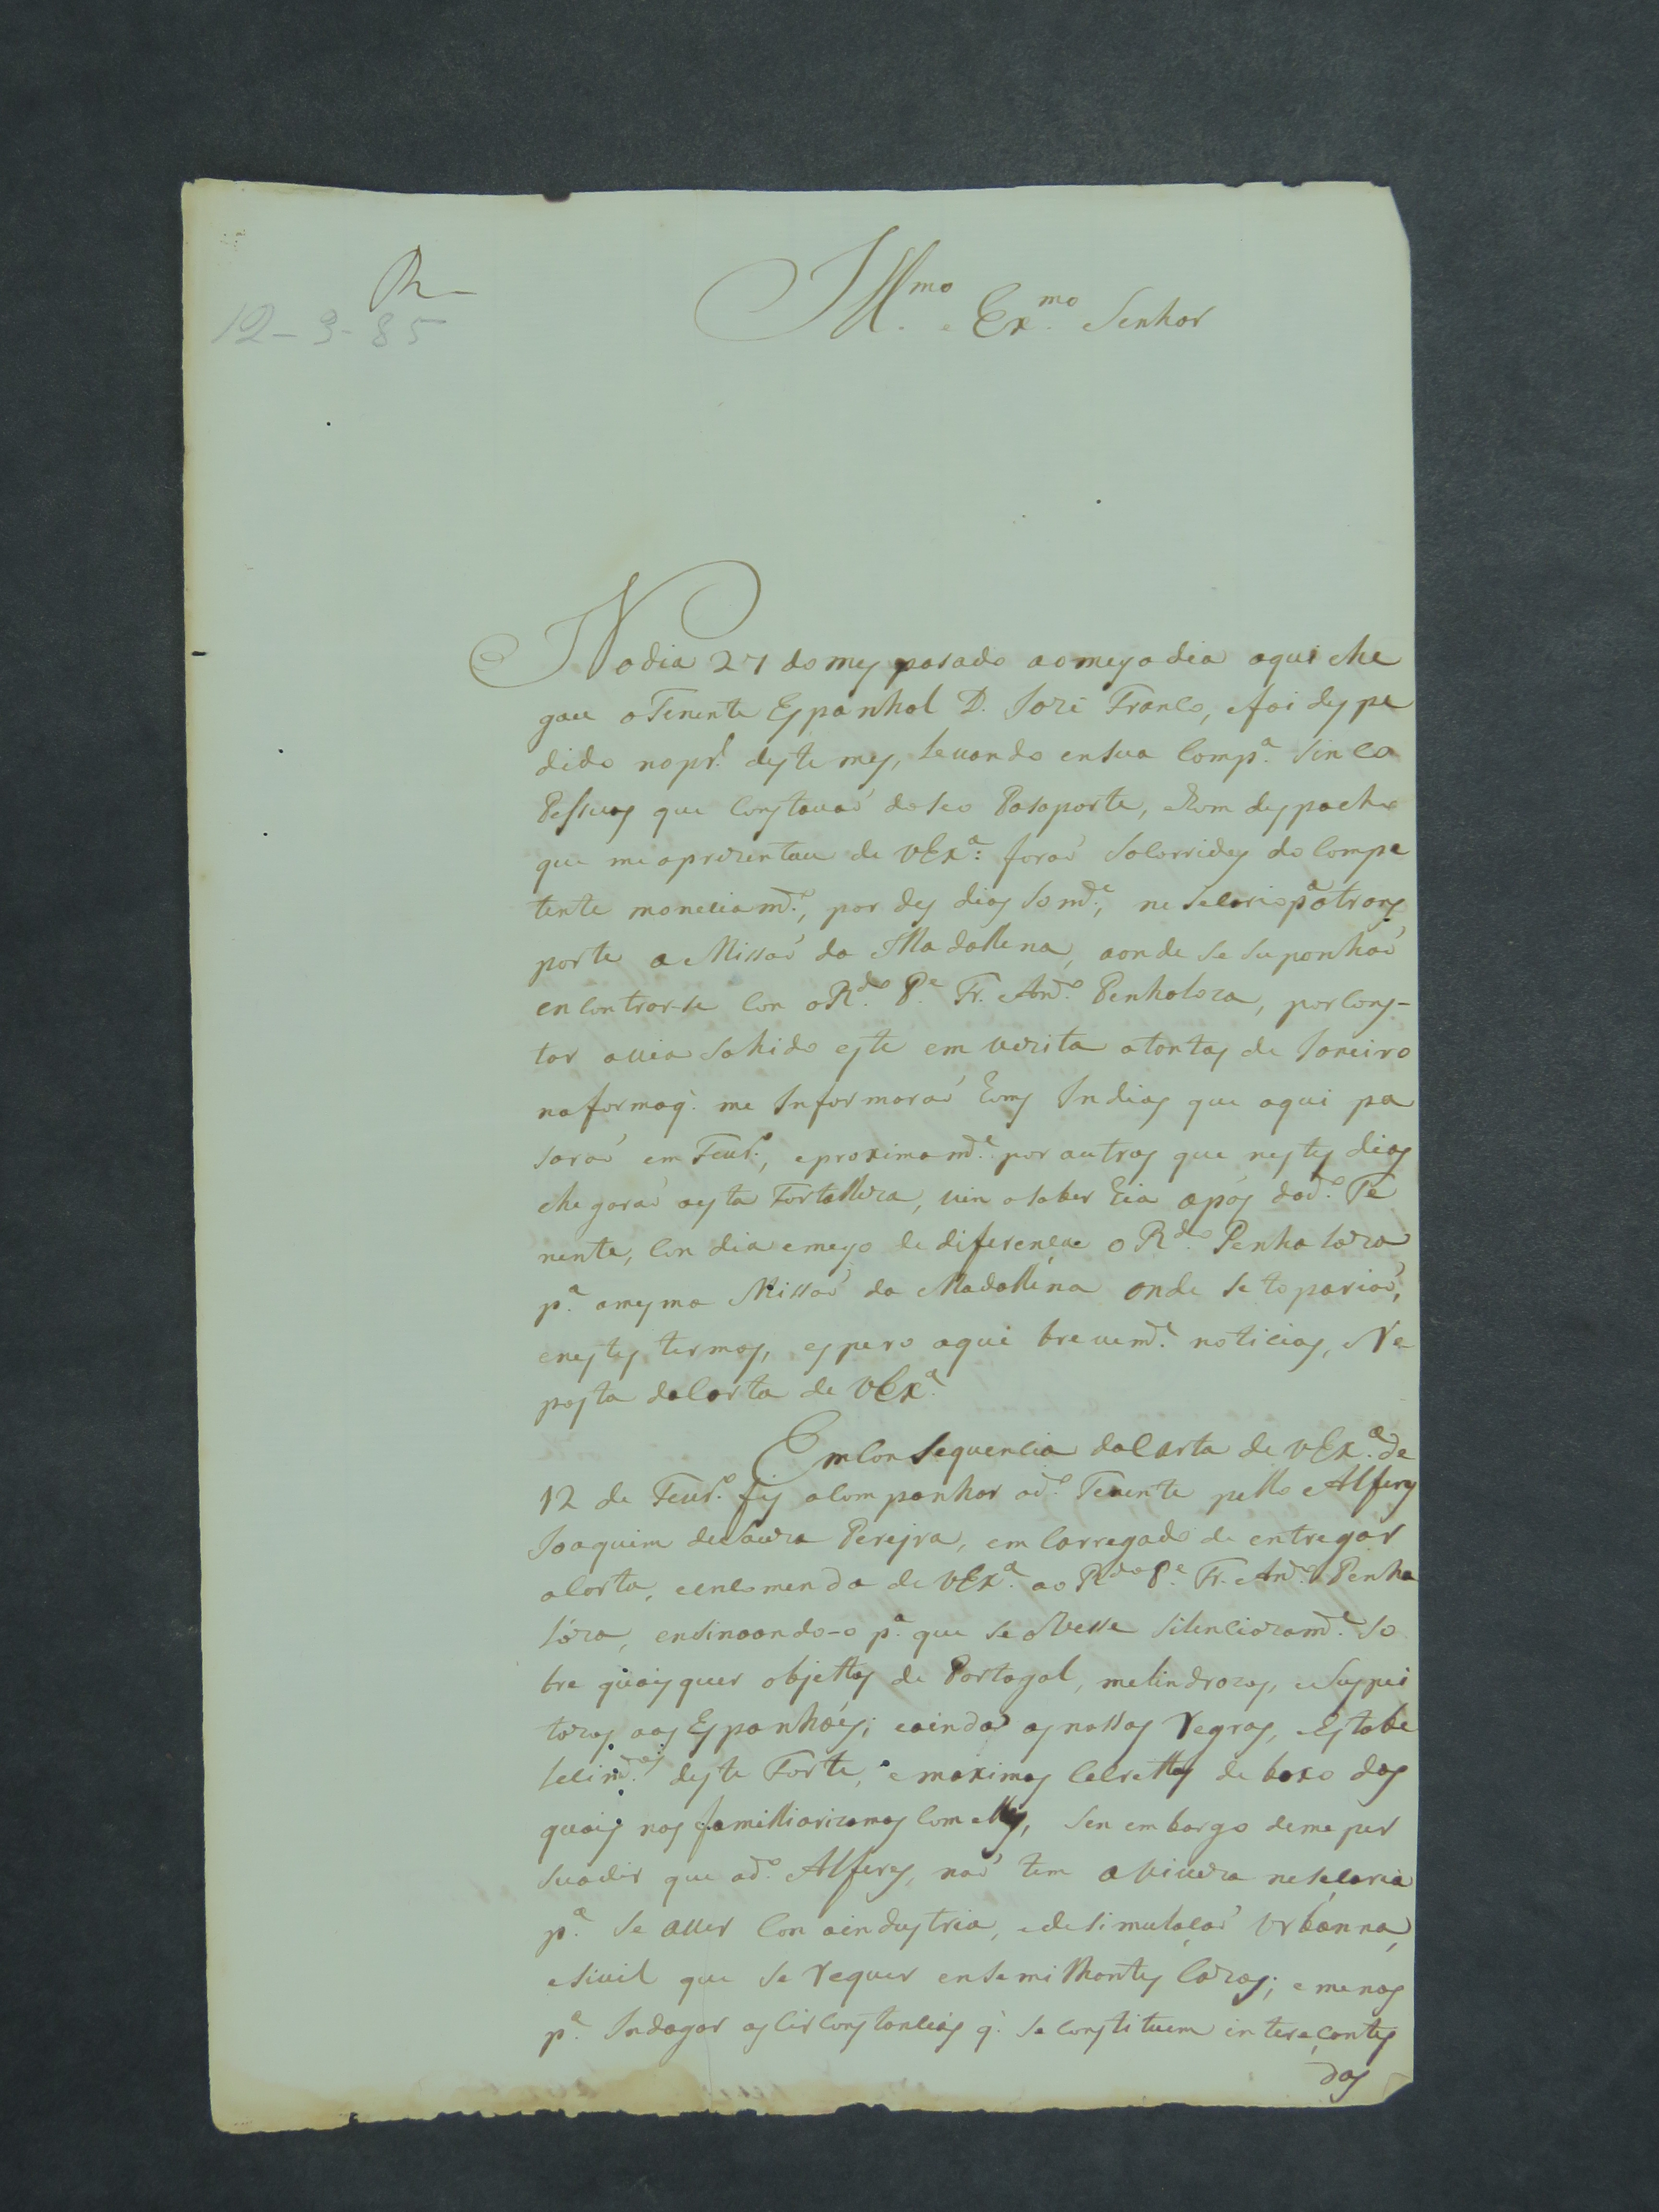 R
12-3-85
Ill.mo e Ex.mo Senhor
No dia 27 do mes pasado ao meyo dia aqui che
gou o Tenente Espanhol D. Jozê Franco, e foi despe
dido no pr.o deste mes, levando en sua Comp.a sinco
Pessuas que Constavaõ do seo Pasaporte, e com despacho
que me aprezentou de V Ex.a: foraõ Socorridos do Compe
tente moneciam.to, por des dias som.e, neseçario p.a trans
porte a Missaõ da Madallena, aonde se supunhaõ
encontrar-se Con o R.do P.e Fr. And.e Penhaloza, por Cons-
tar avia sahido este em vezita a tantos de Janeiro
na forma q. me Informaraõ huns Indios que aqui pa
saraõ em Fevr.o, e proximam.e por outros que nestes dias
chegaraõ a esta Fortalleza, vin a saber hia após do d.o Te
nente, Con dia e meyo de diferença o R.do Penhaloza
p.a a mesma Missaõ da Madallena onde se topariaõ,
e nestes termos, espero aqui brevem.e noticias, e Re
posta da Carta de V Ex.a
Em Consequencia da Carta de V Ex.a de
12 de Fevr.o fis acompanhar o d.o Tenente pello Alferes
Joaquim de Souza Pereyra, emCarregado de entregar
a Carta, e encomenda de V Ex.a ao R.do P.e Fr. And.e Penha
lóza, ensinoando-o p.a que se ouvesse silenciozam.e so
bre quaisquer objettos de Portugal, melindrozos, e suspei
tozos aos Espanhóes; e ainda as nossas regras, e Estabe
lecim.tos deste Forte, e maximas Celrettas de baxo das
quais nos familliarizamos Com elles, sen embargo de me per
suadir que o d.o Alferes, naõ tem a viveza neseçaria
p.a se aver Con a industria, e desimulaçaõ Urbanna,
e sivil que se requer en semilhantes Cazos; e menos
p.a Indagar as Circonstancias q. se constituem intereçantes
dos